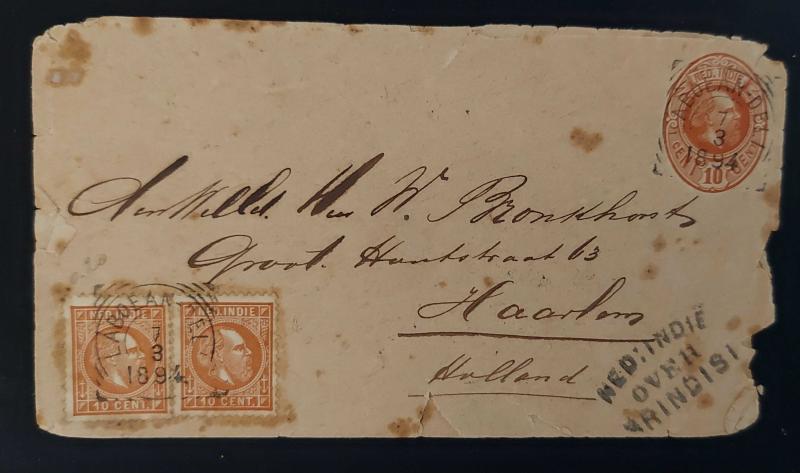 NED. INDIE
LABOEAN-DELI
7
3
1894
CENT
10
CENT
Den WelEd. Heer W. Bronkhorst
Groot Houtstraat 63
Haarlem
Holland
NED. INDIE
LABOEAN DELI
7
3
1894
10 CENT.
NED. INDIE
10 CENT.
NED: INDIE
OVER
BRINDISI